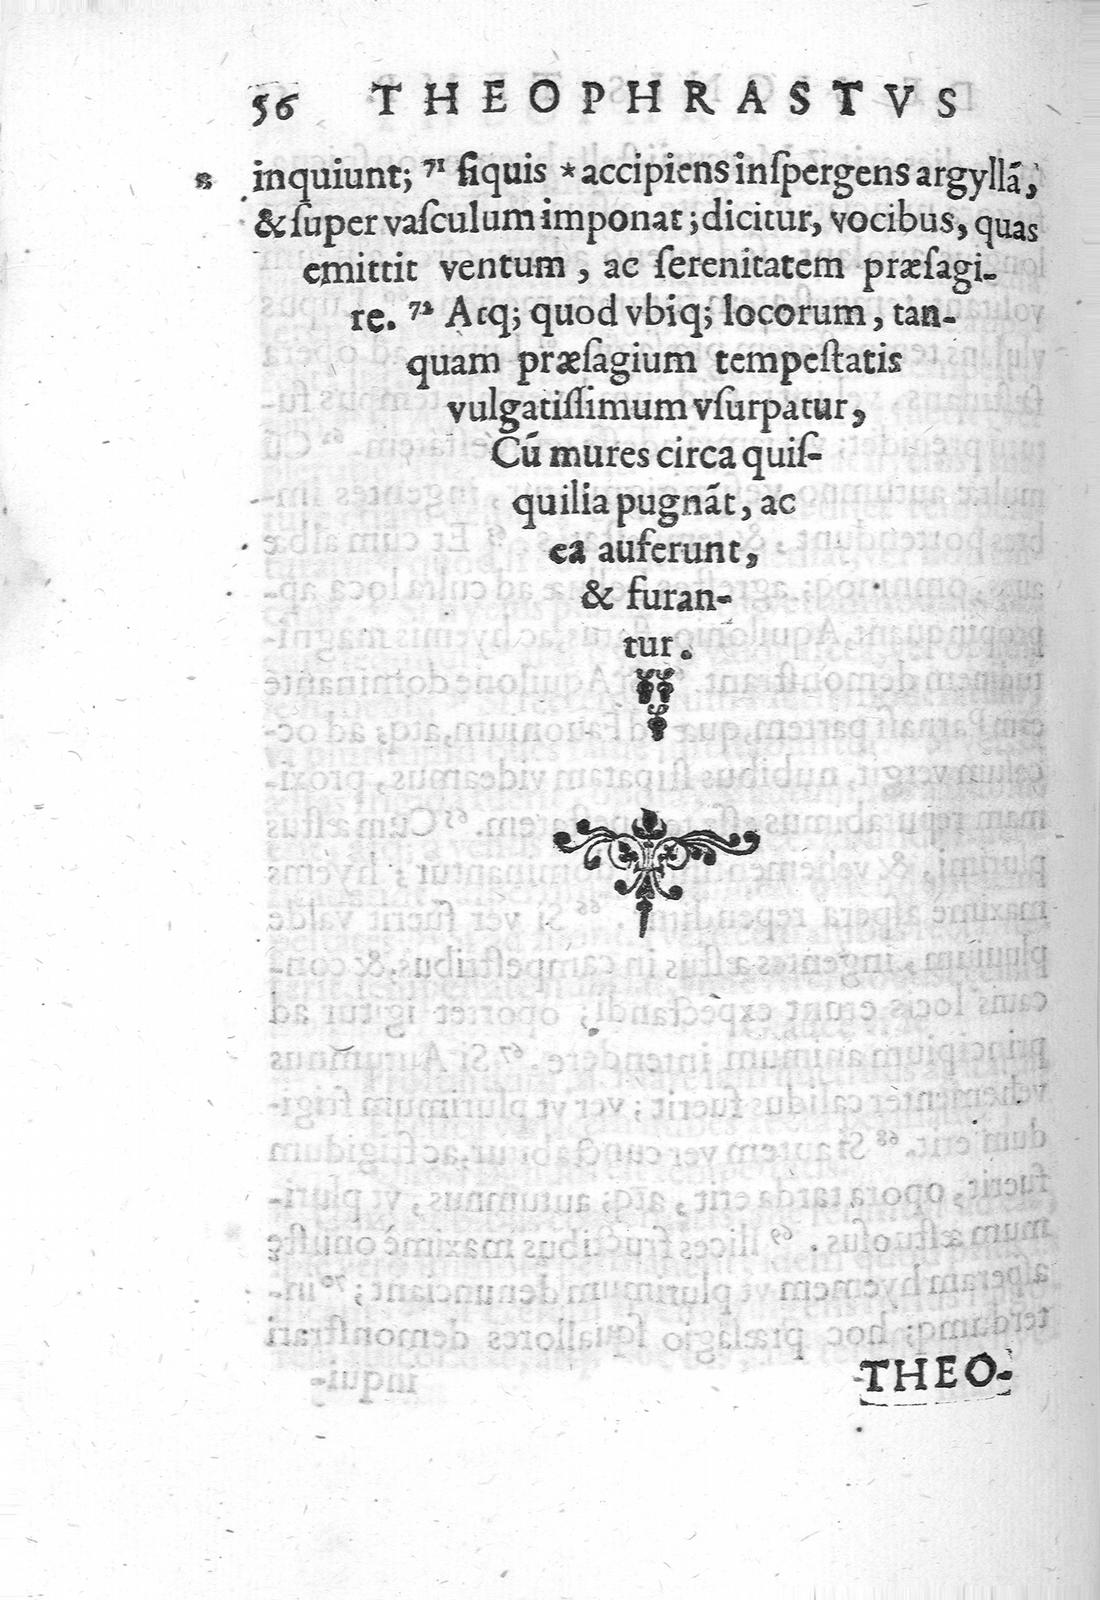 56 THEOPHRASTVS
inquiunt; 71 ſiquis *accipiens inſpergens argyllã,
& ſuper vaſculum imponat; dicitur, vocibus, quas
emittit ventum, ac ſerenitatem præſagi-
re. 72 Atq; quod vbiq; locorum, tan-
quam præſagium tempeſtatis
vulgatiſſimum vſurpatur,
Cũ mures circa quiſ-
quilia pugnãt, ac
ea auferunt,
& furan-
tur.
THEO-